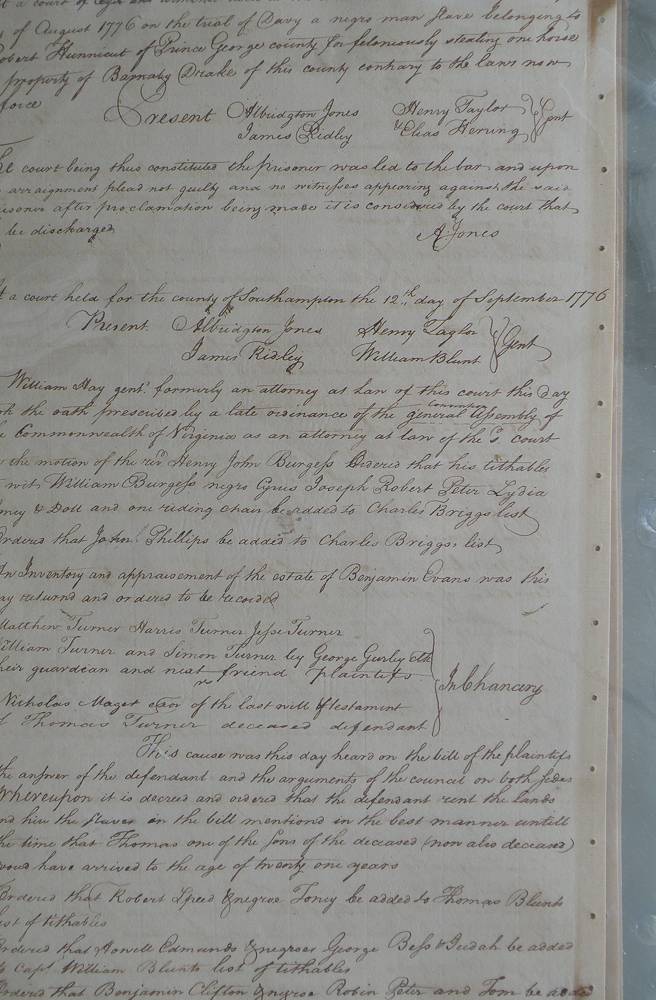 t a court of Oyer and
of August 1776 on the trial of Davy a negro man slave belonging to
obert Hunnicut of Prince George county for feloniously stealing one horse
property of Barnaby Drake of this county contrary to the laws now
force
Present Albridgton Jones Henry Taylor } Gent
James Ridley & Elias Herring
he court being thus constituted the prisoner was led to the bar and upon
arraignment plead not guilty and no witnesses appearing against the said
isoner after proclamation being made it is considered by the court that
be discharged
A: Jones
t a court held for the county of Southampton the 12th day of September 1776
Present Albridgton Jones Henry Taylor } Gent
James Ridley William Blunt
William Hay gent. formerly an attorney at Law of this court this day
ok the oath prescribed by a late ordinance of the general Convention Assembly of
e Commonwealth of Virginia as an attorney at law of the sd. court
the motion of the revd Henry John Burgess Ordered that his tithables
wit William Burgess negro Cyrus Joseph Robert Peter Lydia
ncy & Doll and one riding chair be added to Charles Briggs list
Ordered that John Phillips be added to Charles Briggs list
An Inventory and appraisement of the estate of Benjamin Evans was this
ay returnd and ordered to be recorded
Matthew Turner Harris Turner Jesse Turner
William Turner and Simon Turner by George Gurley
heir guardian and next friend plaintifs
vs
} In Chancery
Nicholas Maget exor of the last will & testament
f Thomas Turner deceased defendant
This cause was this day heard on the bill of the plaintifs
the answer of the defendant and the arguments of the council on both sides
Whereupon it is decreed and ordered that the defendant rent the lands
nd hire the slaves in the bill mentioned in the best manner untill
the time that Thomas one of the sons of the deceased (now also deceased)
woud have arrived to the age of twenty one years
Ordered that Robert Speed & negroe Toney be added to Thomas Blunts
list of tithables
Ordered that Howell Edmunds & negroes George Bess & Judah be added
to Capt. William Blunts list of tithables
Ordered that Benjamin Clifton & negroe Robin Peter and Tom be added